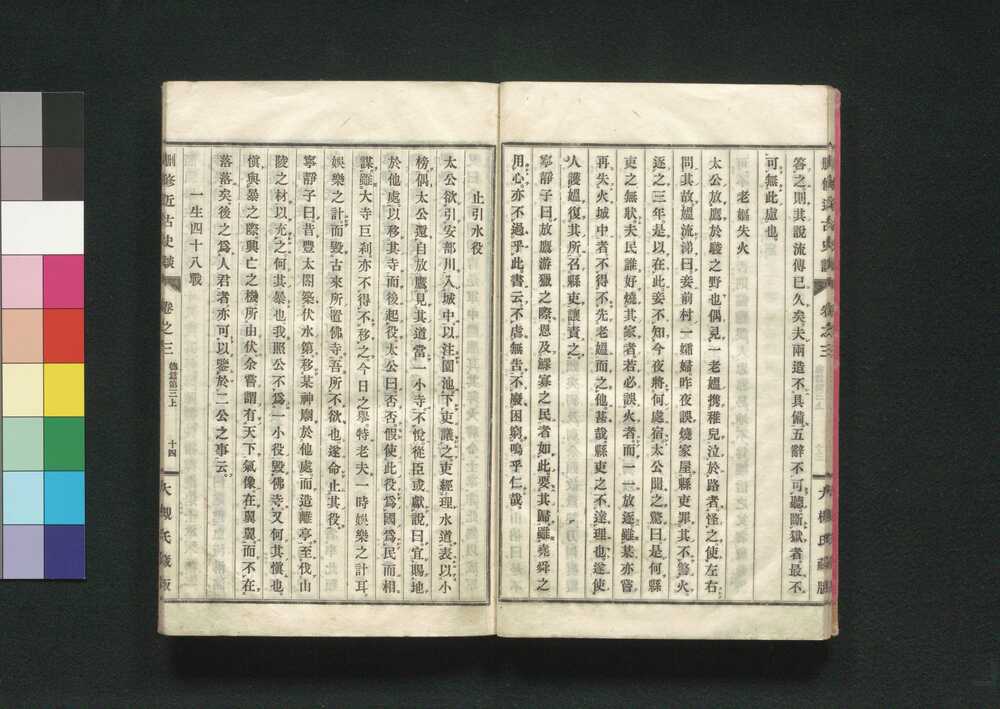 答之則其說流傳已久矣夫兩造不具備五辭不可聽斷獄者最不
可無此慮也
老嫗失火
太公放鷹於駿之野也偶見一老嫗携稚兒泣於路者怪之使左右
問其故嫗流涕曰妾前村一孀婦昨夜誤燒家屋縣吏罪其不警火
逐之三年是以在此妾不知今夜將何處宿太公聞之驚曰是何縣
吏之無狀夫民誰好燒其家者若必誤火者而一一放逐雖某亦嘗
再失火城中者不得不先老嫗而之他甚哉縣吏之不達理也遂使
人護嫗復其所召縣吏讓責之
寧靜子曰放鷹游獵之際恩及鰥寡之民者如此要其歸雖堯舜之
用心亦不過乎此書云不虐無告不廢困窮嗚乎仁哉
止引水役
太公欲引安部川入城中以注園池下吏議之吏經理水道表以小
榜偶太公還自放鷹見其道當一小寺不悅從臣或獻說曰宜賜地
於他處以移其寺而後起役太公曰否否假使此役爲國爲民而相
謀雖大寺巨刹亦不得不移之今日之擧特老夫一時娛樂之計耳
娛樂之計而毀古來所置佛寺吾所不欲也遂命止其役
寧靜子曰昔豐太閤築伏水第移某神廟於他處而造離亭至伐山
陵之材以充之何其暴也我照公不爲一小役毀佛寺又何其愼也
愼與暴之際興亡之機所由伏余嘗謂有天下氣像在翼翼而不在
落落矣後之爲人君者亦可以鑒於二公之事云
一生四十八戰
刪修近古史談 卷之三 德篇第三上 十四 大槻氏藏版